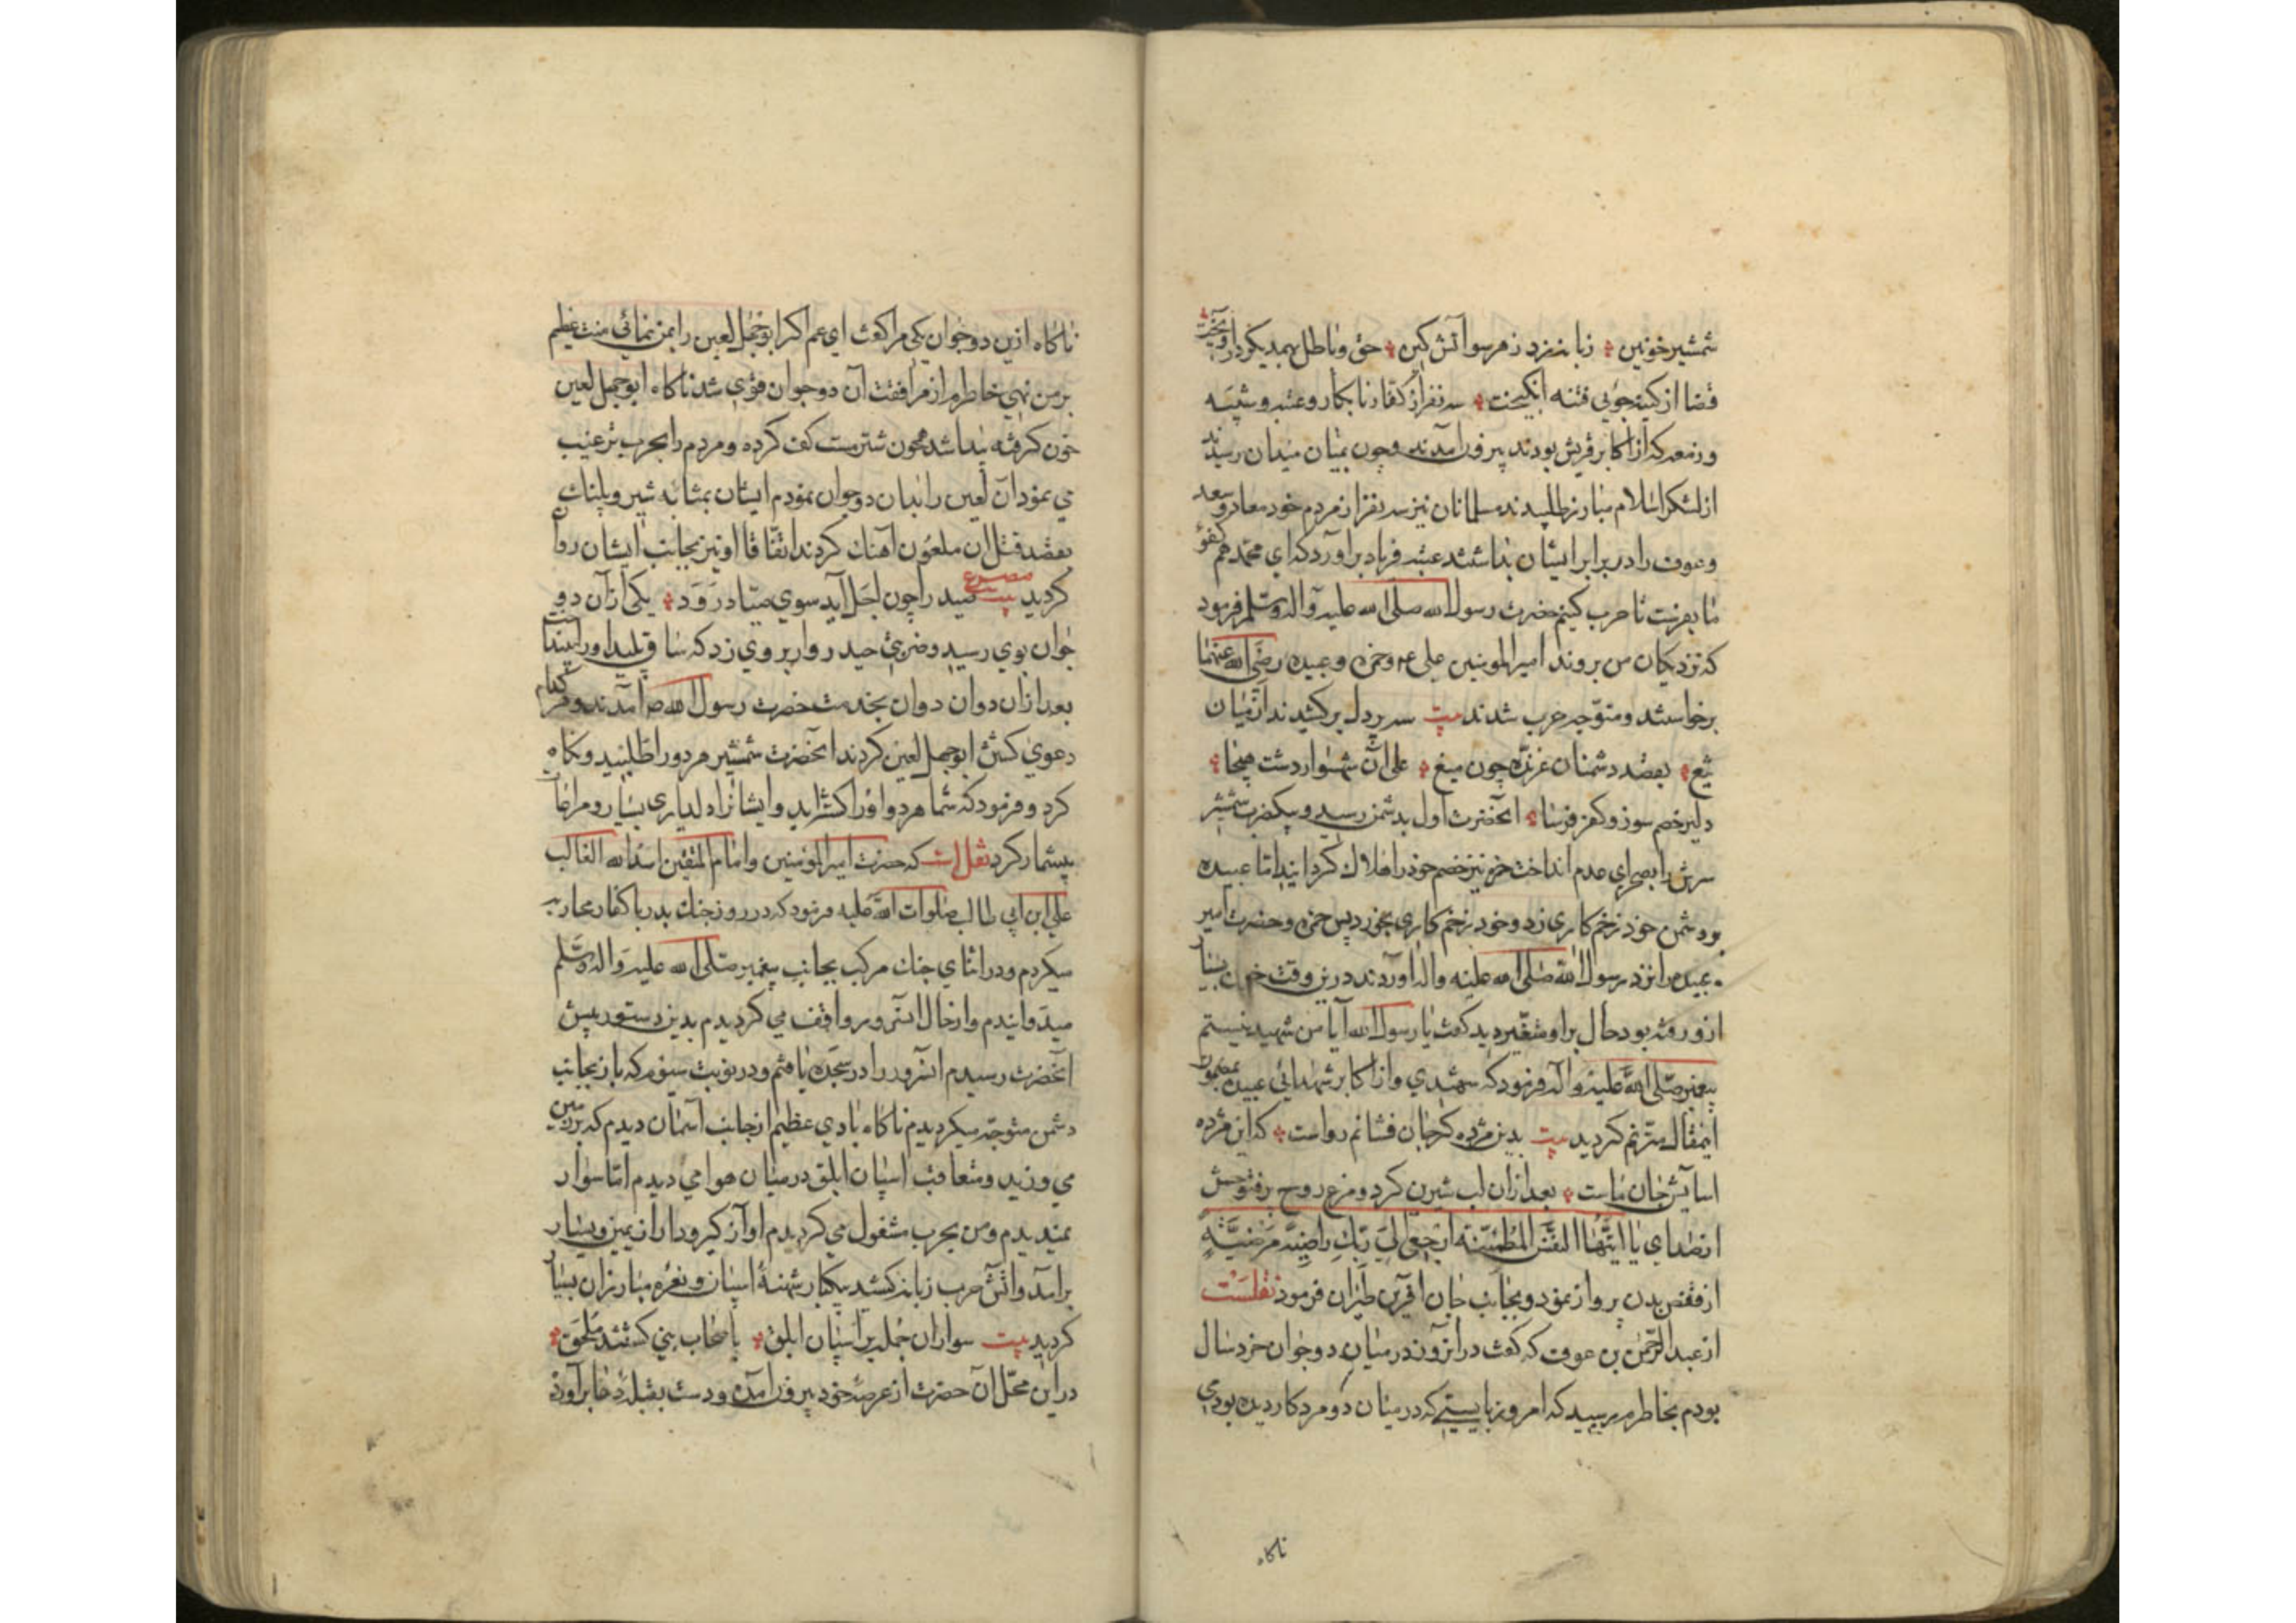 شمشیر خونین ٭ زبانه زد ز هر سو آتش کین ٭ حق و باطل بهمدیکر در آویخت
قضا از کینه جویی فتنه انکیخت ٭ سه نفر از کفار نابکار و عتبه و شیبه
و زمعه که از اکابر قریش بودند بیرون آمدند و چون بمیان میدان رسیدند
از لشکر اسلام مبارز طلبیدند مسلمانان نیز سه نفر از مردم خود معاذ و سعد
و عوف را در برابر ایشان عتبه فریاد برآورد که ای محمد هم کفو
ما بفرست تا حرب کنیم حضرت رسول الله صلی الله علیه وآله وسلم فرمود
که نزدیکان من بروند امیر المومنین علی ع و حمزه و عبیده رضی الله عنهما
برخاستند و متوجه حرب شدند بیت سه پر دل برکشیدند از میان
تیغ ٭ بقصد دشمنان غرنده چون میغ ٭ علی آن شهسوار دشت هیجا ٭
دلیر خصم سوز و کفر فرسا ٭ آنحضرت اول بدشمن رسید و بیکضرب شمشیر
سرش را بصحرای عدم انداخت حمزه نیز خصم خود را هلاک کردانید اما عبیده
بدشمن خود زخم کاری زد و خود زخم کاری بخورد پس حمزه و حضرت امیر
عبیده را نزد رسول الله صلی الله علیه واله اوردند درین وقت خون بسیار
ازو رفته بود حال بر او متغیر دید کفت یا رسول الله آیا من شهید نیستم
پیغمبر صلی الله علیه وآله فرمود که شهیدی و از اکابر شهدائی عبیده بمضمون
اینمقال مترنم کردید بیت بدین مژده کر جان فشانم رواست ٭ که این مژده
اسایش جان ماست ٭ بعد از ان لب شیرین کرد و مرغ روح
از صدای یا ایتها النفس المطمئنة ارجعی الی ربک راضیة مرضیة
از قفص بدن پرواز نمود و بجانب جان آفرین طیران فرمود نقلست
از عبد الرحمن بن عوف که کفت در انروز در میان دو جوان خردسال
بودم بخاطرم رسید که امروز بایستی که در میان دو مرد کار دیده بودمی
ناکاه
ناکاه ازین دو جوان یکی مرا کفت ای عم اکر ابوجهل لعین را بمن نمائی منت عظیم
بر من نهی خاطرم از مرافقت آن دو جوان قوی شد ناکاه ابوجهل لعین
خون کرفته پیدا شد همچون شتر مست کف کرده و مردم را بحرب ترغیب
می نمود آن لعین را بدان دو جوان نمودم ایشان بمثابه شیر و پلنک
بقصد قتل ان ملعون آهنک کردند اتفاقا او نیز بجانب ایشان روان
کردید مصرع صید را چون اجل آید سوی صیاد رود ٭ یکی از آن دو
جوان بوی رسید و ضربتی حیدر وار بر وی زد که ساق پلید او را بینداخت
بعد از ان دوان دوان بخدمت حضرت رسول الله ص آمدند و هر کدام
دعوی کشتن ابوجهل لعین کردند آنحضرت شمشیر هر دو را طلبید و نکاه
کرد و فرمود که شما هر دو او را کشته اید و ایشانرا دلداری بسیار و مراعات
بیشمار کرد نقل است که حضرت امیر المومنین و امام المتقین اسد الله الغالب
علی ابن ابی طالب صلوات الله علیه فرمود که در روز جنک بدر با کفار محاربه
میکردم و در اثنای جنک مرکب بجانب پیغمبر صلی الله علیه واله وسلم
میدوانیدم و از حال انسرور واقف می کردیدم بدین دستور پیش
آنحضرت رسیدم انسرور را در سجده یافتم و در نوبت سیوم که باز بجانب
دشمن متوجه میکردیدم ناکاه بادی عظیم از جانب آسمان دیدم که بر زمین
می وزید و متعاقب اسپان ابلق در میان هوا می دیدم اما سوار
نمیدیدم و من بحرب مشغول می کردیدم اواز کیرودار از یمین و یسار
برآمد و آتش حرب زبانه کشید بیکبار شیهه اسپان و نعره مبارزان بسیار
کردید بیت سواران جمله بر اسپان ابلق ٭ باصحاب نبی کشتند ملحق ٭
در این محل آن حضرت از عرصه خود بیرون آمده و دست بقبله دعا برآورد